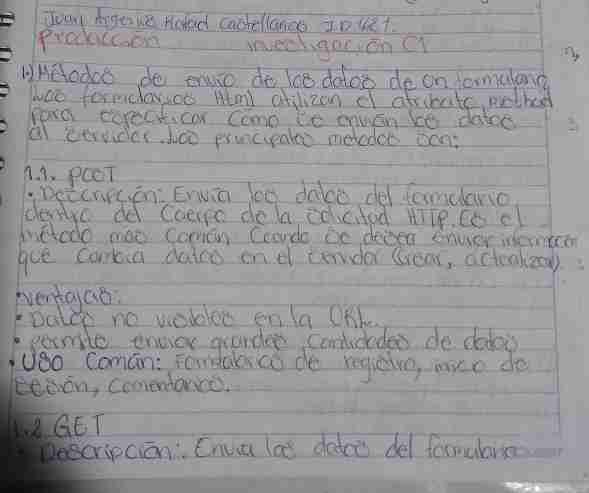 Juan Hoded Castellanos ID 421.
Producción investigación C1
1) Métodos de envio de los datos de un formulario
Los formularios Html utilizan el atributo method
para especificar como se envían los datos
al servidor. Los principales metodos son:
1.1. POST
• Descripción: Envia los datos del formulario
dentro del Cuerpo de la solicitud HTTP. Es el
método mas común Cuando se desea enviar información
que cambia datos en el servidor (crear, actualizar).
• Ventajas:
• Datos no visibles en la URL.
• Permite enviar grandes Cantidades de datos
• Uso Común: Formularios de registro, inicio de
sesión, comentarios.
1.2 GET
• Descripción: Envia los datos del formulario